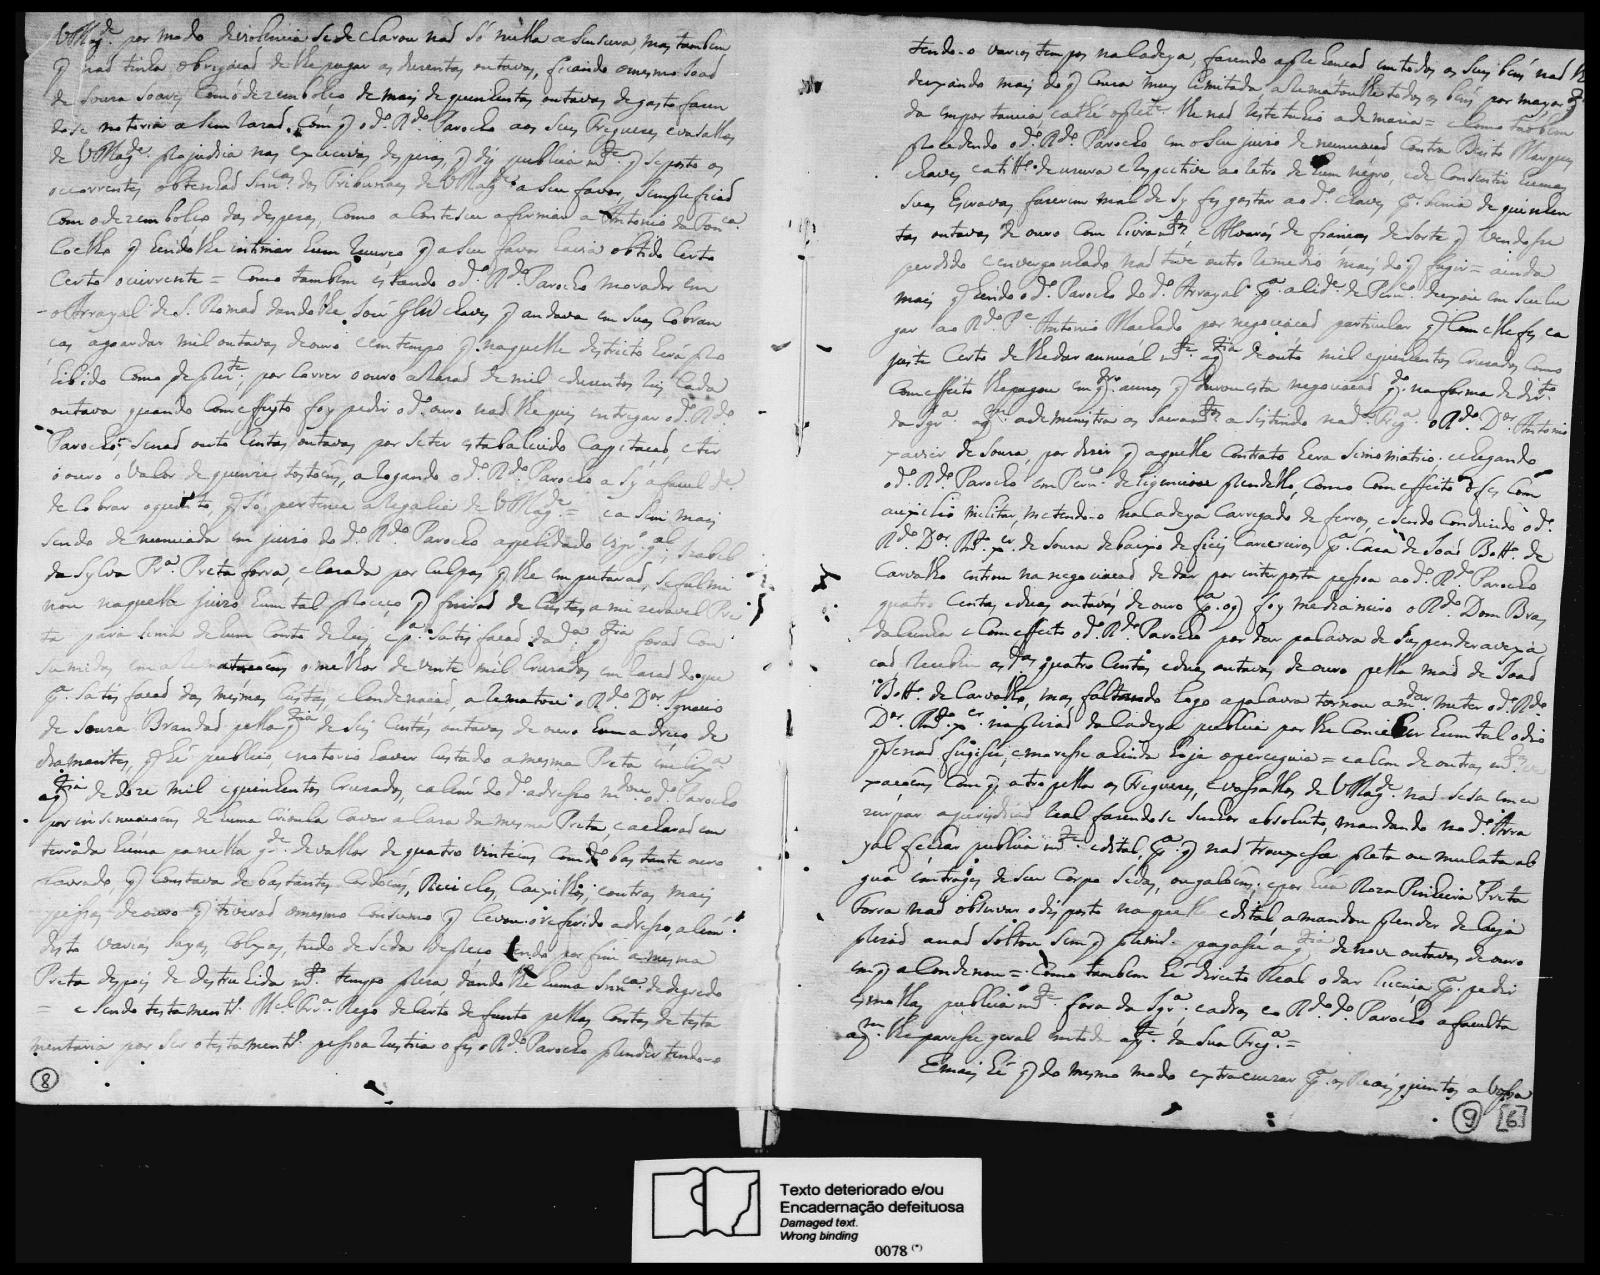 VMag.de por modo de violencia se declarou naõ só nulla a sensura mas tambem
q̃ naõ tinha obrigaçaõ de lhe pagar as duzentas outavas, ficando o mesmo Joaõ
de Souza Soares com o dezembolço de mais de quinhentas outavas de gasto
notoria a sem razaõ. Com q̃ o d.o R.do Parocho aos seus Freguezes e vasallos
de VMag.de prejudica nas excecivas despezas, q̃ hé publica m.te q̃ se posto os
ocurrentes obtenhaõ snn.ca dos Tribunaes de VMag.de a seu favor,
com o dezembolço das despezas, como aconteseu afirmar a Antonio da Fon.ca
Coelho q̃ hindo lhe intimar hum recurço q̃ a seu favor havia obtido certo
certo ocurrente = Como tambem estando o d.o R.do Parocho morador em
o Arrayal de S. Romaõ dandolhe Chaves q̃ andava em suas cobran
cas aguardar mil outavas de ouro e em tempo q̃ naquelle destricto hera pro
hibido como de prez.te por correr o ouro a razaõ de mil e duzentos reis cada
outava quando com effeyto foy pedir o d.o ouro naõ lhe quis entregar o d.o R.do
Parocho senaõ outo centas outavas por se ter estabalecido Capitacaõ, e ter
o ouro o valor de quinze tostoens, alogando o d.o R.do Parocho a sy a facul.de
de cobrar o quinto, q̃ só pertence a regalia de VMag.de = e a sim mais
sendo denunciada em juizo do d.o R.do Parocho apelidado Vigr.o g.al Izabel
da Sylva Pr.a Preta forra, e cazada por culpas q̃ lhe emputaraõ, se fulmi
nou naquelle juizo hum tal proceço q̃ fiseraõ de custas a mizeravel Pre
ta para sima de hum conto de reis e p.a satisfaçaõ da d.a q̃tia foraõ con
sumidos em aremataçoens o melhor de vinte mil cruzados em razaõ de que
p.a satisfaçaõ das mesmas custas, e condenacaõ, arematou o R.do D.or Ignacio
de Souza Brandaõ pella q̃tia de seis centas outavas de ouro hum adreço de
diamantes, q̃ hé publico, e notorio haver custado a mesma Preta em Lix.a
a q̃tia de doze mil e quinhentos cruzados, e alem do d.o adreço m.dou o d.o Parocho
por insinuacoens de huma Crioula cavar a caza da mesma Preta, e acharaõ en
terrada huma panella gr.de de vallor de quatro vintens com bastante ouro
lavrado, q̃ constava de bastantes cordoens, Brincos, e outras mais
pessas de ouro q̃ tiveraõ o mesmo consumo q̃ levou o referido adreço, alem
disto varias sayas, colxas, tudo de seda
Preta despois de destruhida m.to tempo preza dandolhe huma snn.ca de degredo
= e sendo testament.ro M.el Frr.a Rego de certo defunto pellas contas da testa
mentaria por ser o testament.ro pessoa rustica o fes o R.do Parocho prender tendo-o
8
tendo-o varios tempos na Cadeya, fazendo aprehencaõ em todos os seus bens naõ lhe
deyxando mais do q̃ couza muy limitada arematoulhe todos os bens por mayor q̃
da emportancia e athé o prez.te lhe naõ restituhio a demazia = Como tambem
procedendo o d.o R.do Parocho em o seu juizo de nunciaçaõ contra Bento Marques
Chaves a titt.o de uzura e respective ao letro de hum négro, e de consentir humas
suas escravas fazerem mal de sy fes gastar ao d.o Chaves p.a sima de quinhen
tas outavas de ouro com livram.to, e Alvarás de fiancas de sorte q̃ vendose
perdido e envergonhado naõ teve outro remedio mais do q̃ fugir = ainda
mais q̃ hindo o d.o Parocho do d.o Arrayal p.a a Cid.e de Pern.co deyxou em seu lu
gar ao R.do P.e Antonio Machado por negociacaõ particular q̃ com elle fes e a
juste certo de lhe dar annual m.te a q̃tia de outo mil e quinhentos cruzados, como
com effeito lhe pagou em q.to annos q̃ durou esta negociacaõ q̃ na forma de dir.to
da Igr.a aq.m administra os sacram.tos asistindo na d.a Freg.a o R.do D.or Antonio
Xavier de Souza, por dizer q̃ aquelle contrato hera simoniatico. chegando
o d.o R.do Parocho em Pern.co deligenciou prendello, como com effeito o fes com
auxilio militar, metendo-o na Cadeya carregado de ferros, e sendo conduzido o d.o
R.do D.or Ant.o X.er de Souza debaixo de fieis carcereiros p.a caza de Joaõ Bott.o de
Carvalho entrou na negociacaõ de dar por interposta pessoa ao d.o R.do Parocho
quatro centas e duas outavas de ouro p.a o q̃ foy medianeiro o R.do Dom Bras
da Cunha e com effeito o d.o R.do Parocho por dar palavra de suspender a vexa
caõ recebeu as d.as quatro centas e duas outavas de ouro pella maõ de Joaõ
Bott.o de Carvalho, mas faltando logo a palavra tornou a m.dar meter o d.o R.do
D.or Ant.o X.er na prizaõ da Cadeya publica por lhe conceber hum tal odio
q̃ se naõ fugisse, e morresse ainda hoje o perceguia = e alem de outras m.tas ve
xacoens com q̃ atropella os Freguezes, e vassallos de VMag.de naõ sesa em u
zurpar a jurisdicaõ Real fazendose senhor absoluto, mandando no d.o Arra
yal fechar publica m.te edital, p.a q̃ naõ trouxesse preta ou mulata al
guã em trajes de seu corpo sedas, ou galoens; e por huã Roza Pinheira Preta
Forra naõ observar o disposto naquelle edital, a mandou prender de cuja
prizaõ a naõ soltou sem q̃ prim.o pagasse a q̃tia de nove outavas de ouro
em q̃ a condenou = Como tambem hé direito Real o dar licença p.a pedir
esmollas publica m.te fora da Igr.a e adros e o R.do d.o Parocho a faculta
aq.m lhe parese geral mente da Sua Freg.a =
E mais hé q̃ do mesmo modo extracurar p.a os Reais quintos a Vossa
9 [6]
Texto deteriorado e/ou
Encadernação defeituosa
Damaged text.
Wrong binding
0078 (*)